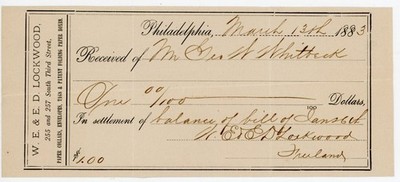 W. E. & E. D. LOCKWOOD,
255 and 257 South Third Street,
PAPER COLLARS, ENVELOPES, TAGS & PATENT FOLDING PAPER BOXES.
Philadelphia, March 13th 1883
Received of Mr Geo W Whitbeck
One 00/100 Dollars,
In settlement of balance of bill of Jans 6th
W. E & E D Lockwood
$1.00